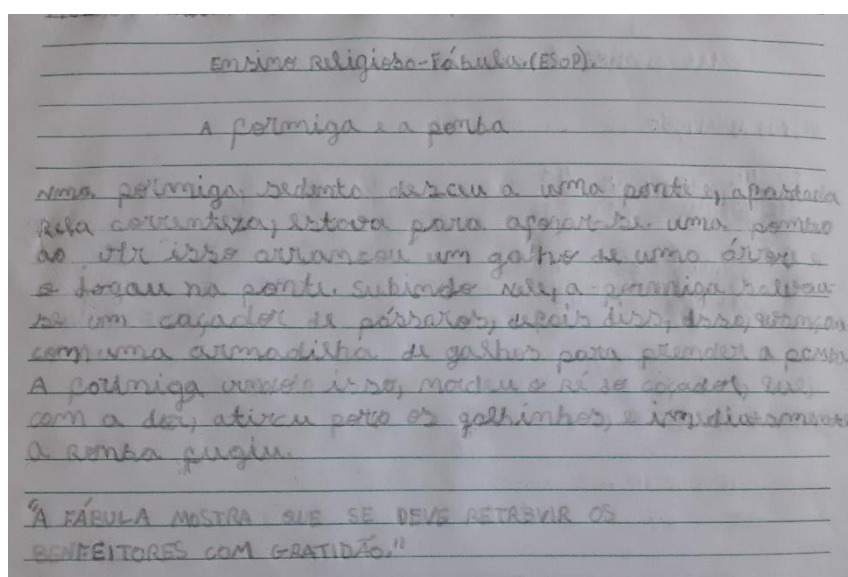 Ensino Religioso-Fábula.(ESOP).
A formiga e a pomba
Uma formiga, sedenta desceu a uma fonte e, arrastada
pela correnteza, estava para afogar-se. uma pomba
ao ver isso arrancou um galho de uma árvore
e jogou na fonte. subindo nele, a formiga salvou
se um caçador de pássaros, depois diss, disso, avançou
com uma armadilha de galhos para prender a pomba
A formiga vendo isso, mordeu o pé do caçador, que,
com a dor, atirou para os galhinhos, e imediatamente
a pomba fugiu.
"A FÁBULA MOSTRA QUE SE DEVE RETRBUIR OS
BENFEITORES COM GRATIDÃO."